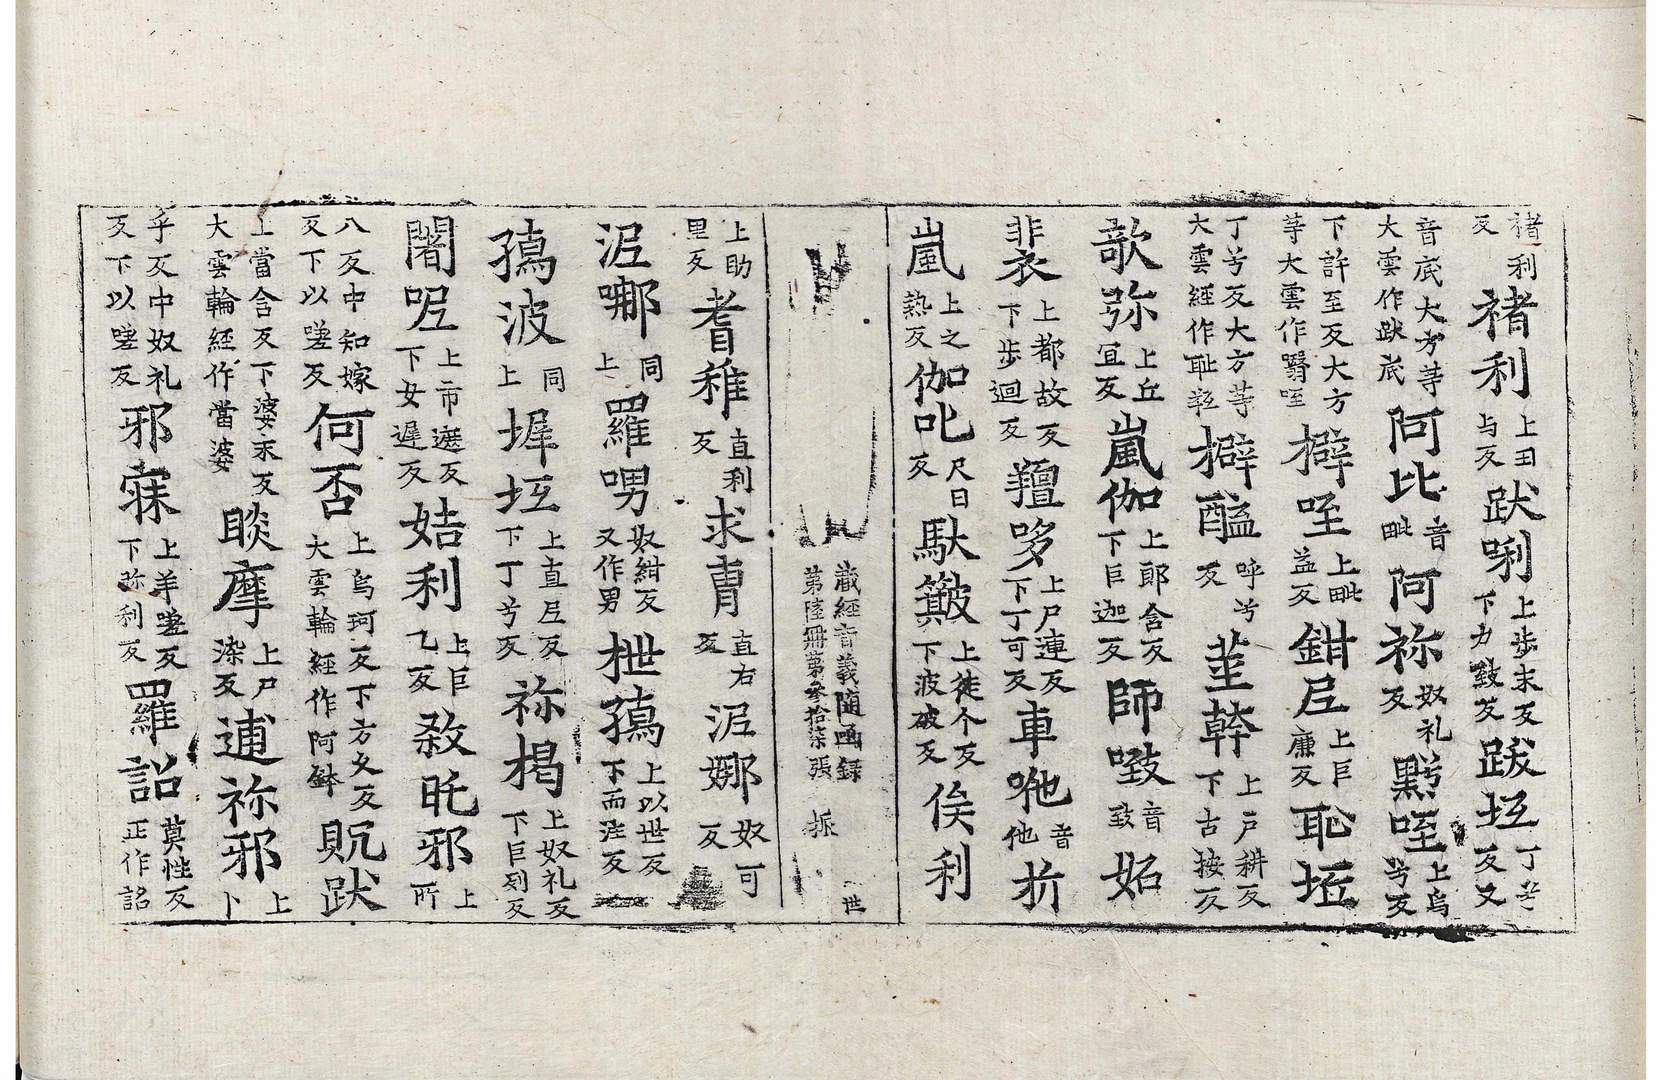 褚利反 褚利 上丑与反 跋唎 上步末反下力致反 跋坘 丁兮反又
音底大方等大雲作趺底 阿比 音毗 阿祢 奴礼反 黳咥 上烏兮反
下許至反大方等大雲作翳咥 擗咥 上毗益反 鉗𡰱 上巨廉反 恥垤
丁兮反大方等大雲經作耻䡄 擗醯 呼兮反 莖幹 上戸耕反下古按反
歆弥 上丘宜反 嵐伽 上郎含反下巨迦反 師㗧 音致 妬
裴 上都故反下步迴反 羶哆 上尸連反下丁可反 車吔 音他 折
嵐 上之熱反 伽叱 尺日反 馱簸 上徒个反下波破反 俟利
藏經音義隨函錄第陸冊第叄拾柒張 振 世
上助里反 耆稚 直利反 求冑 直右反 泥娜 奴可反
泥哪 同上 羅嘮 奴紺反又作男 枻𤡬 上以世反下而注反
𤡬波 同上 墀坘 上直尼反下丁兮反 祢楬 上奴礼反下巨列反
闍呢 上市遮反下女遲反 姞利 上巨乙反 敎毦邪 上所
八反中知嫁反下以嗟反 何否 上烏珂反下方久反大雲輪經作阿鉢 貺跋
上當含反下婆末反大雲輪經作當婆 睒摩 上尸染反 逋祢邪 上卜
乎反中奴礼反下以嗟反 邪寐 上羊嗟反下弥利反 羅詺 莫性反正作詺